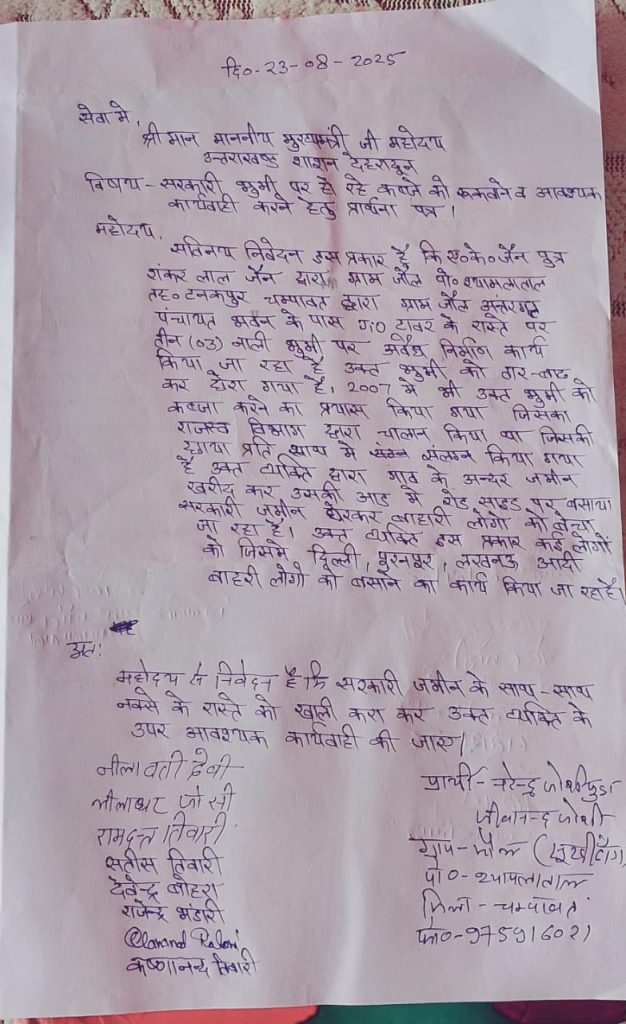 दि०-23-08-2025
सेवा में,
श्री मान माननीय मुख्यमंत्री जी महोदय
उत्तराखण्ड शासन देहरादून
विषय - सरकारी भुमी पर हो रहे कब्जे को रुकवाने व आवश्यक
कार्यवाही करने हेतु प्रार्थना पत्र।
महोदय,
सविनय निवेदन इस प्रकार है कि ए०के० जैन पुत्र
शंकर लाल जैन द्वारा ग्राम जौल पो० श्यामलाताल
तह० टनकपुर चम्पावत द्वारा ग्राम जौल अंतरगत
पंचायत भवन के पास टावर के रास्ते पर
तीन (03) नाली भुमी पर अवैध निर्माण कार्य
किया जा रहा है उक्त भुमी को तार-बाढ
कर घेरा गया है, 2007 में भी उक्त भुमी को
कब्जा करने का प्रयास किया गया जिसका
राजस्व विभाग द्वारा चालान किया था जिसकी
छाया प्रति साथ में संलग्न किया गया
है उक्त व्यक्ति द्वारा गाव के अन्दर जमीन
खरीद कर उसकी आड मे रोड साइड पर बसाया
सरकारी जमीन घेरकर बाहारी लोगो को बेचा
जा रहा है। उक्त व्यक्ति इस प्रकार कई लोगों
को जिसमे दिल्ली, पुरनपुर, लखनऊ आदी
बाहरी लोगो को बसाने का कार्य किया जा रहा है।
अत:
महोदय से निवेदन है कि सरकारी जमीन के साथ-साथ
नक्से के रास्ते को खाली करा कर उक्त व्यक्ति के
उपर आवश्यक कार्यवाही की जाए।
नीलावती देवी
लीलाधर जोसी
रामदत्त तिवारी
सतीस तिवारी
देवेन्द्र बोहरा
राजेन्द्र भंडारी
कृष्णानन्द तिवारी
प्रार्थी - नरेन्द्र जोशी पुत्र
जीवानन्द जोशी
ग्राम - जौल
पो०- श्यामलाताल
जिला - चम्पावत
फो०-975916021